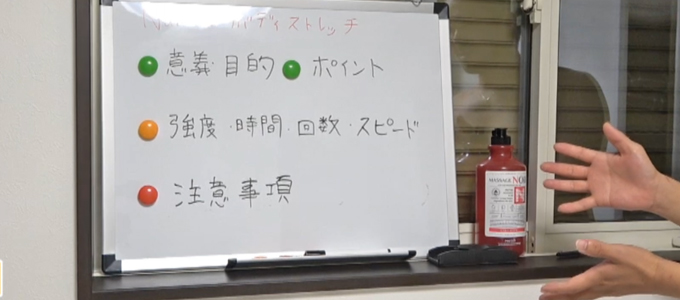 ボディストレッチ
意義・目的 ポイント
強度・時間・回数・スピード
注意事項
MASSAGE